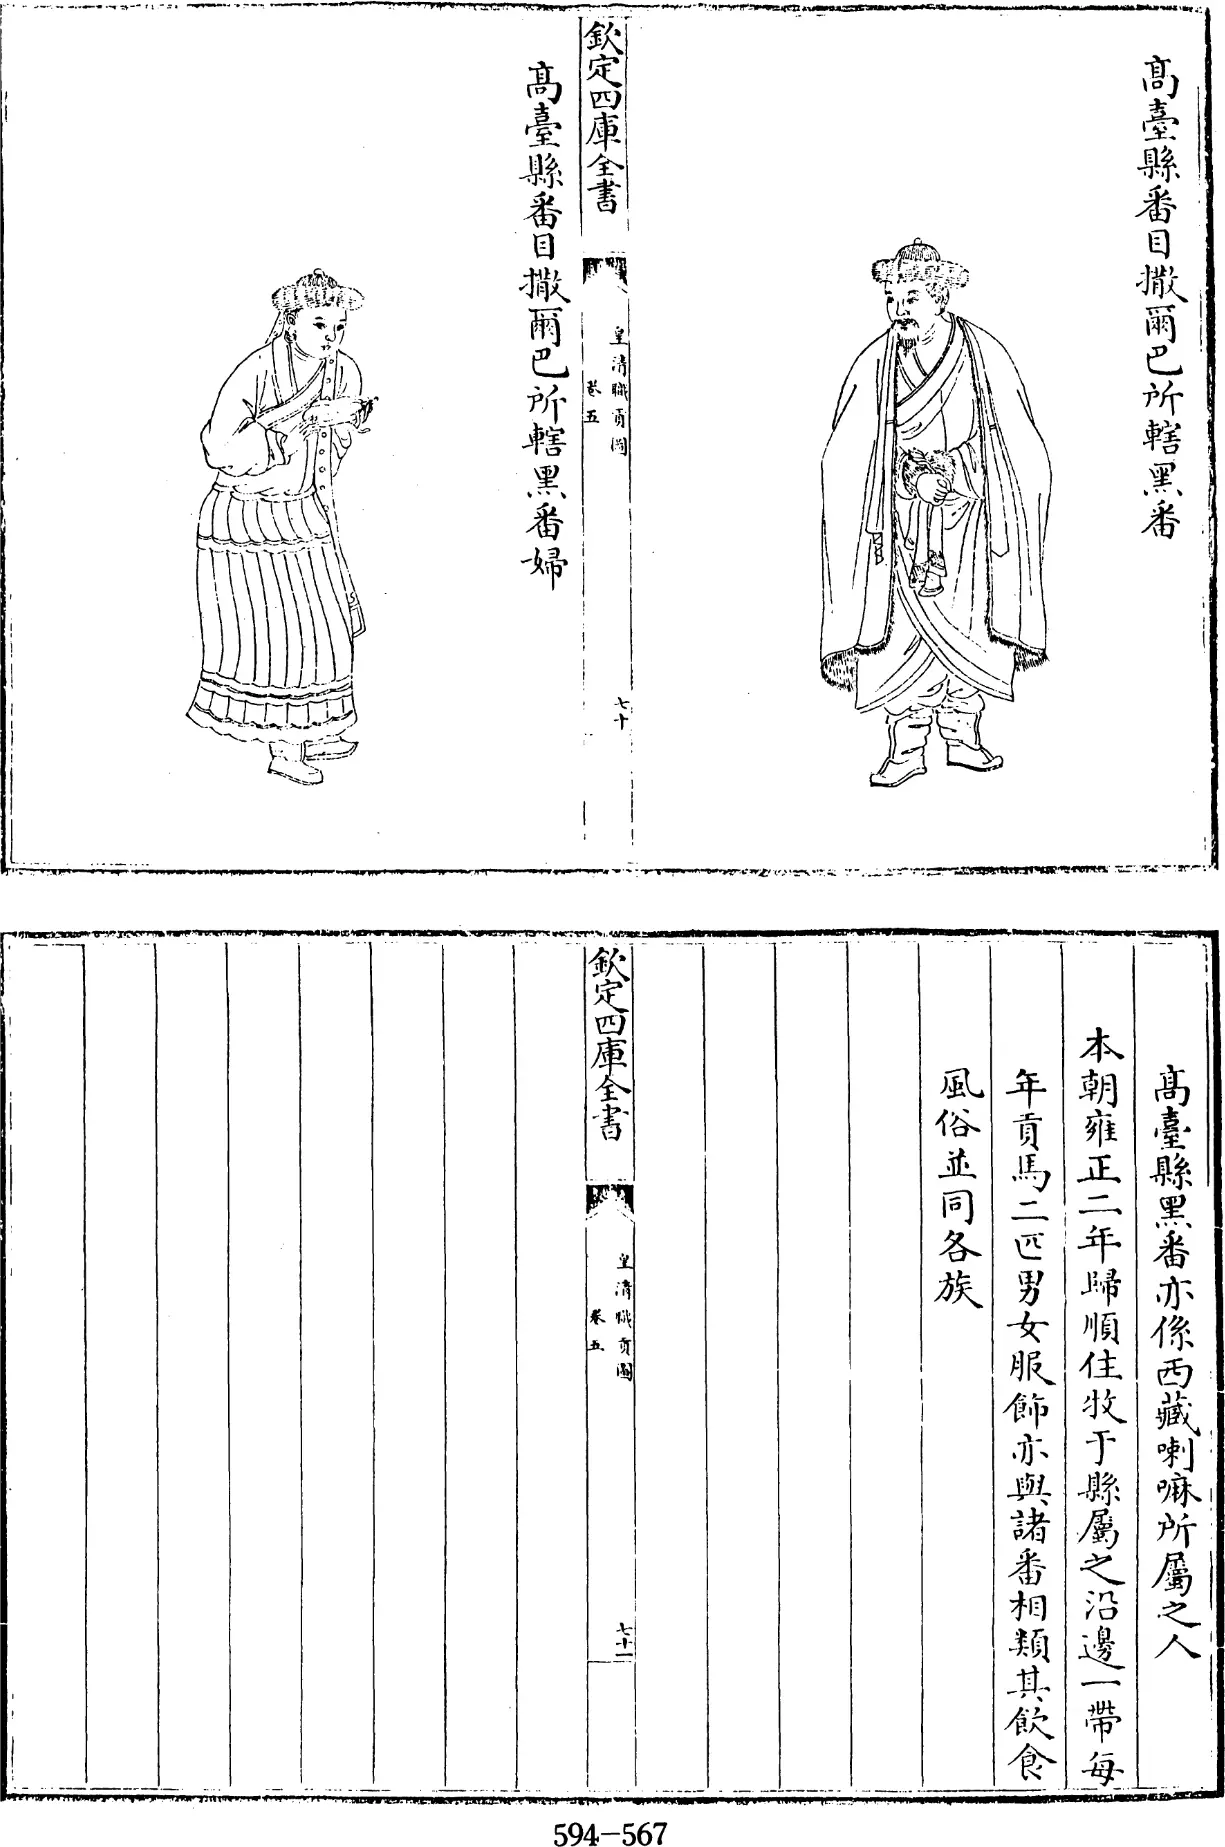 高臺縣番目撒爾巴所轄黑番
欽定四庫全書
皇清職貢圖
卷五
七十
高臺縣番目撒爾巴所轄黑番婦
高臺縣黑番亦係西藏喇嘛所屬之人
本朝雍正二年歸順住牧于縣屬之沿邊一帶每
年貢馬二匹男女服飾亦與諸番相類其飲食
風俗並同各族
欽定四庫全書
皇清職貢圖
卷五
七十一
594-567